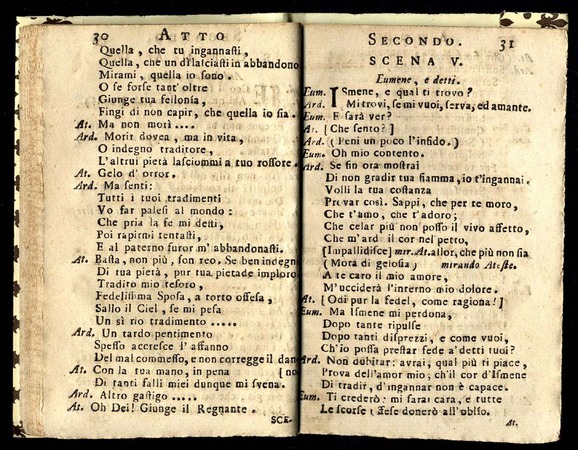 30 ATTO
Quella, che tu ingannasti,
Quella, che un dì lasciasti in abbandono
Mirami, quella io sono.
O se forse tant' oltre
Giunge tua fellonía,
Fingi di non capir, che quella io sia.
At. Ma non morì ....
Ard. Morir dovea, ma in vita,
O indegno traditore,
L'altrui pietà lasciommi a tuo rossore.
At. Gelo d' orror.
Ard. Ma senti:
Tutti i tuoi tradimenti
Vo far palesi al mondo:
Che pria la fe mi detti,
Poi rapirmi tentasti,
E al paterno furor m' abbandonasti.
At. Basta, non più, son reo. Se ben indegno
Di tua pietà, pur tua pietade imploro
Tradito mio tesoro,
Fedelissima Sposa, a torto offesa,
Sallo il Ciel, se mi pesa
Un sì rio tradimento .....
Ard. Un tardo pentimento
Spesso accresce l' affanno
Del mal commesso, e non corregge il dan
At. Con la tua mano, in pena [no
Di tanti falli miei dunque mi svena.
Ard. Altro gastigo .....
At. Oh Dei! Giunge il Regnante.
SCE-
SECONDO. 31
SCENA V.
Eumene, e detti.
Eum. ISmene, e qual ti trovo?
Ard. Mi trovi, se mi vuoi, serva, ed amante.
Eum. E sarà ver?
At. [Che sento?]
Ard. (Peni un poco l'infido.)
Eum. Oh mio contento.
Ard. Se fin ora mostrai
Di non gradir tua fiamma, io t'ingannai.
Volli la tua costanza
Provar così. Sappi, che per te moro,
Che t'amo, che t'adoro;
Che celar più non posso il vivo affetto,
Che m'ard il cor nel petto,
[Impallidisce] mir. At. allor, che più non sia
(Mora di gelosia) mirando At: ste.
A te caro il mio amore,
M'ucciderà l'interno mio dolore.
At. [Odi pur la fedel, come ragiona!]
Eum. Ma Ismene mi perdona,
Dopo tante ripulse
Dopo tanti disprezzi, e come vuoi,
Ch'io possa prestar fede a' detti tuoi?
Ard. Non dubitar: avrai, qual più ti piace,
Prova dell'amor mio, ch'il cor d'Ismene
Di tradir, d'ingannar non è capace.
Eum. Ti crederò: mi sarai cara, e tutte
Le scorse offese donerò all'oblio.
At.